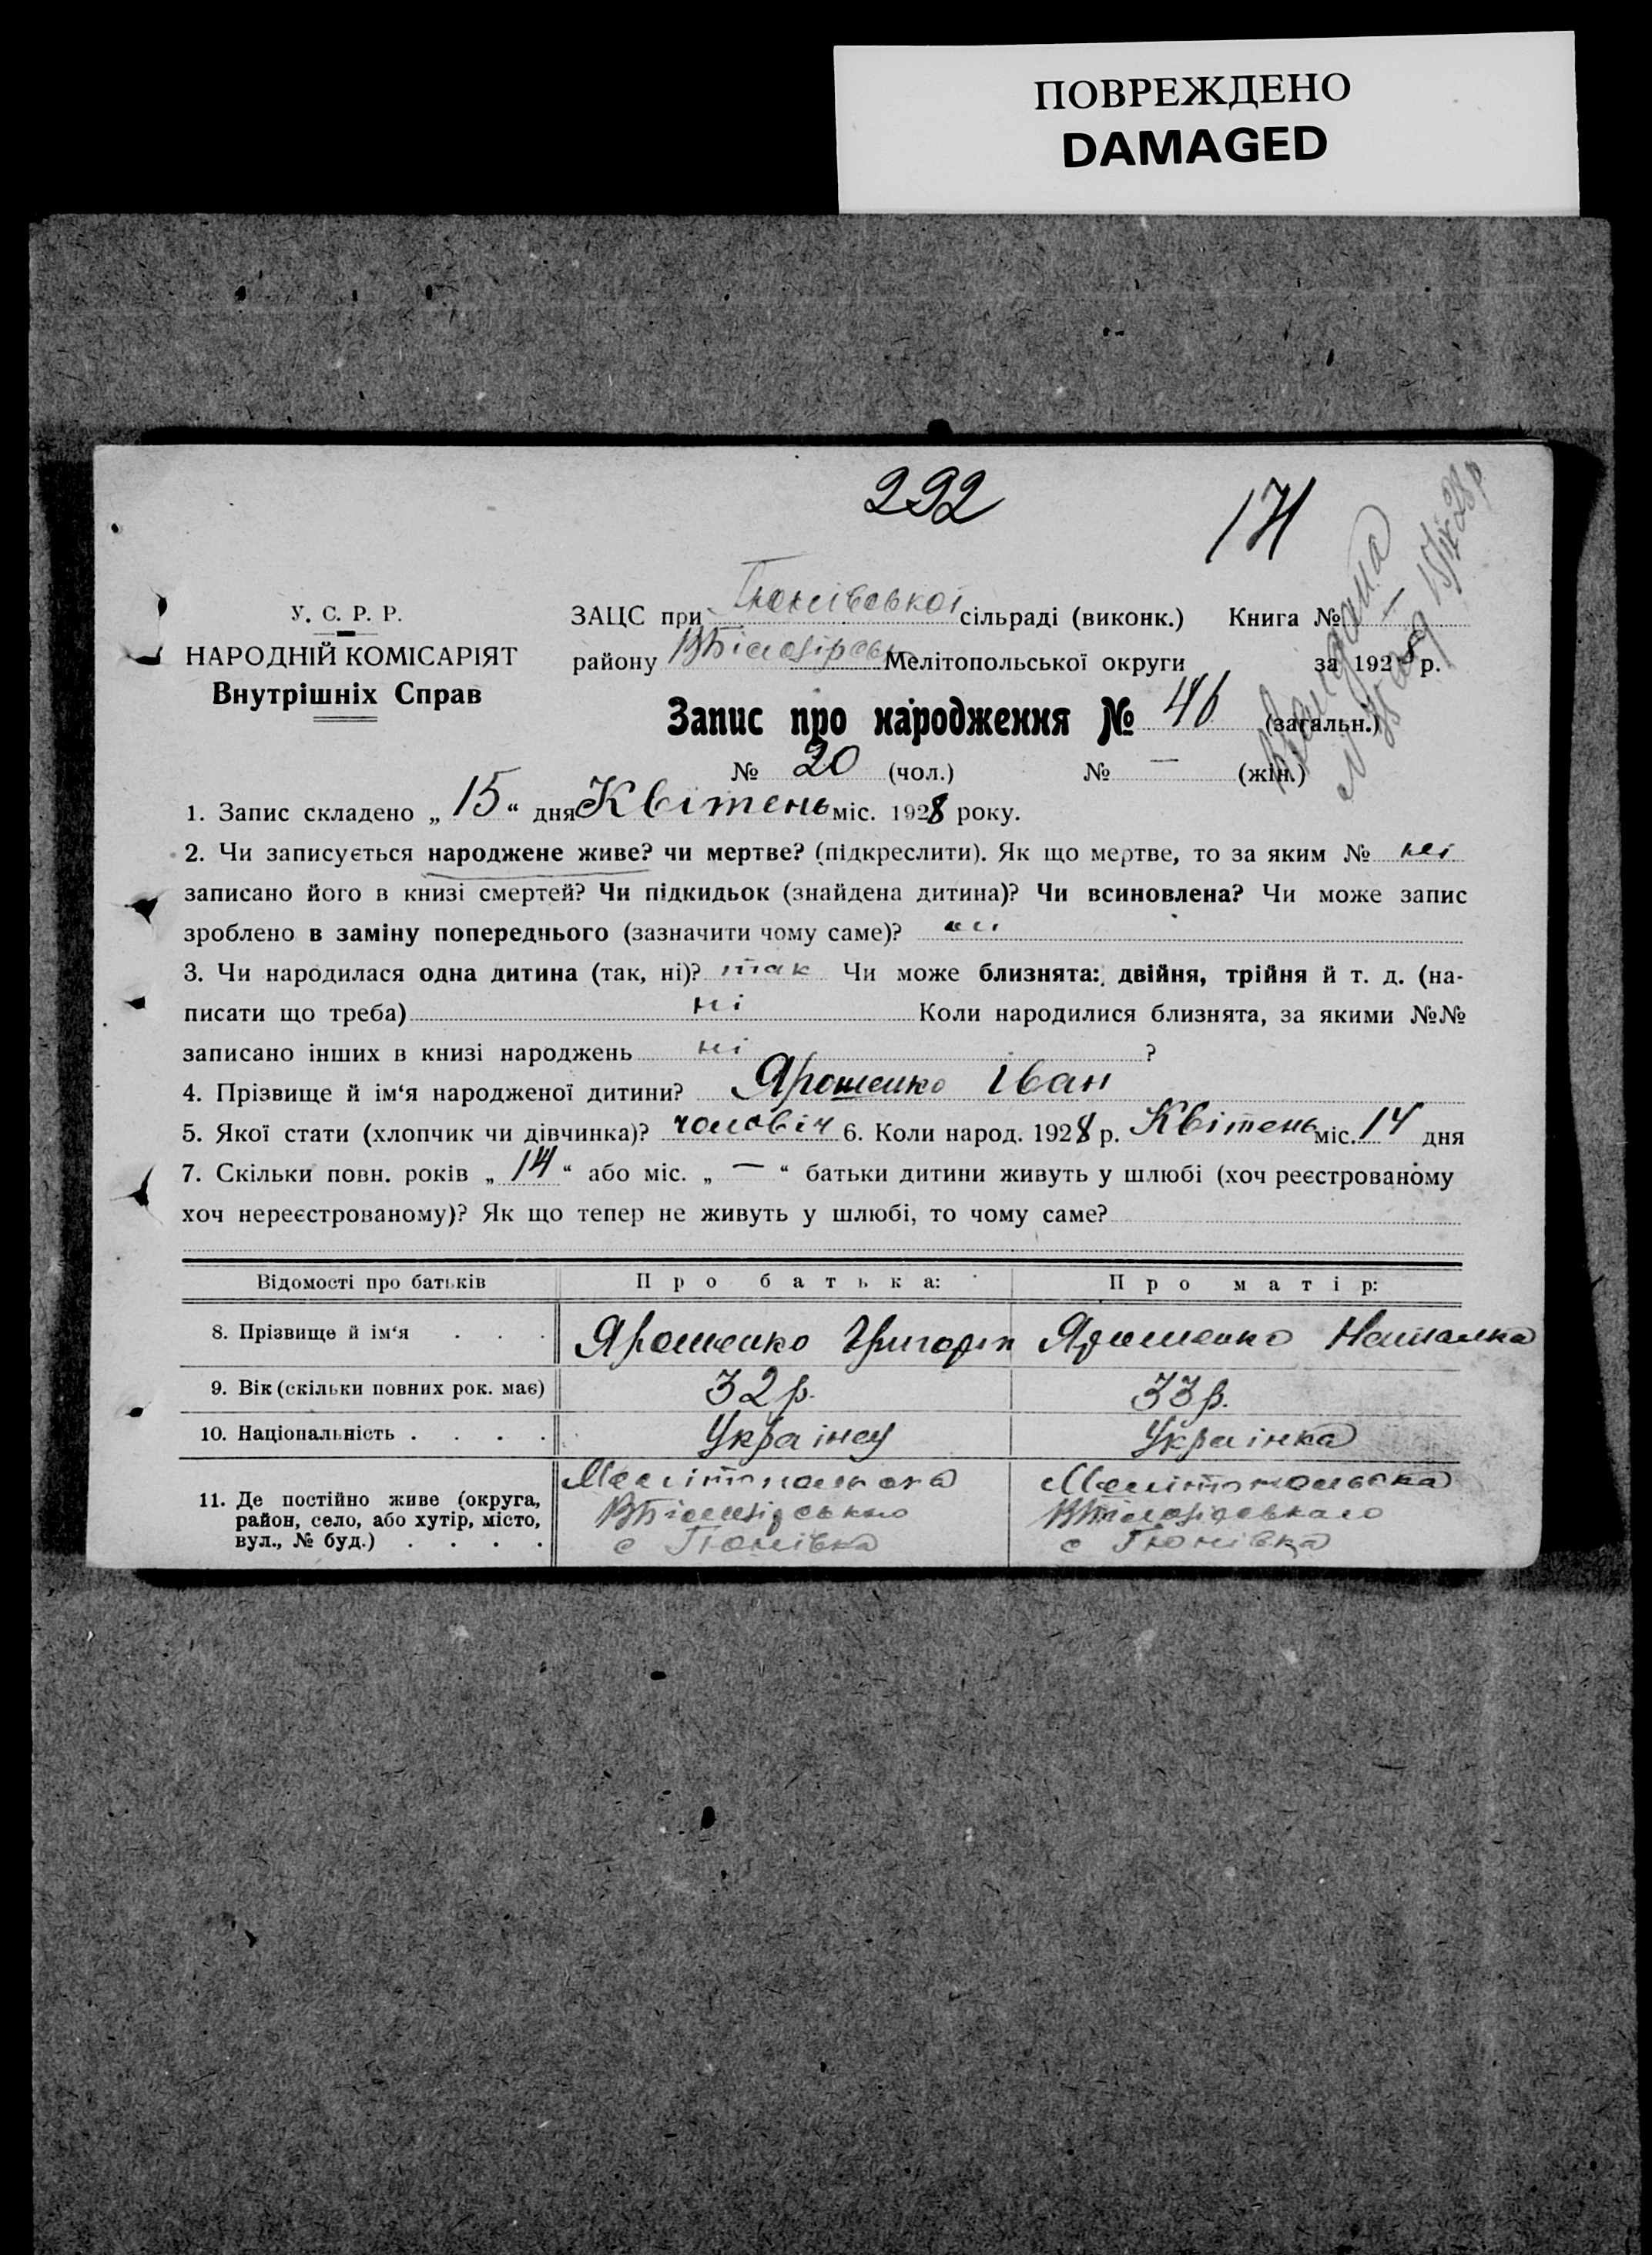 ПОВРЕЖДЕНО
DAMAGED
292
171
У. С. Р. Р.
НАРОДНІЙ КОМІСАРІЯТ
Внутрішніх Справ
ЗАЦС при Тюнівської сільраді (виконк.) Книга № —
району ВБілозірськ Мелітопольської округи за 1928 р.
Запис про народження № 46 (загальн.)
№ 20 (чол.) № — (жін.)
1. Запис складено „ 15 “ дня Квітень міс. 1928 року.
2. Чи записується народжене живе? чи мертве? (підкреслити). Як що мертве, то за яким № ні
записано його в книзі смертей? Чи підкидьок (знайдена дитина)? Чи всиновлена? Чи може запис
зроблено в заміну попереднього (зазначити чому саме)? ні
3. Чи народилася одна дитина (так, ні)? так Чи може близнята: двійня, трійня й т. д. (на-
писати що треба) ні Коли народилися близнята, за якими №№
записано інших в книзі народжень ні ?
4. Прізвище й ім‘я народженої дитини? Ярошенко Іван
5. Якої стати (хлопчик чи дівчинка)? чоловіч 6. Коли народ. 1928 р. Квітень міс. 14 дня
7. Скільки повн. років „ 14 “ або міс. „ — “ батьки дитини живуть у шлюбі (хоч реєстрованому
хоч нереєстрованому)? Як що тепер не живуть у шлюбі, то чому саме?
Відомості про батьків Про батька: Про матір:
8. Прізвище й ім‘я . . . Ярошенко Григорій Ярошенко Наталка
9. Вік (скільки повних рок. має) 32 р. 33 р.
10. Національність . . . . Українец Українка
11. Де постійно живе (округа, район, село, або хутір, місто, вул., № буд.) . . . .
Мелітопольська
ВБілозірсько
с Тюнівка
Мелітопольска
с Тюнівка